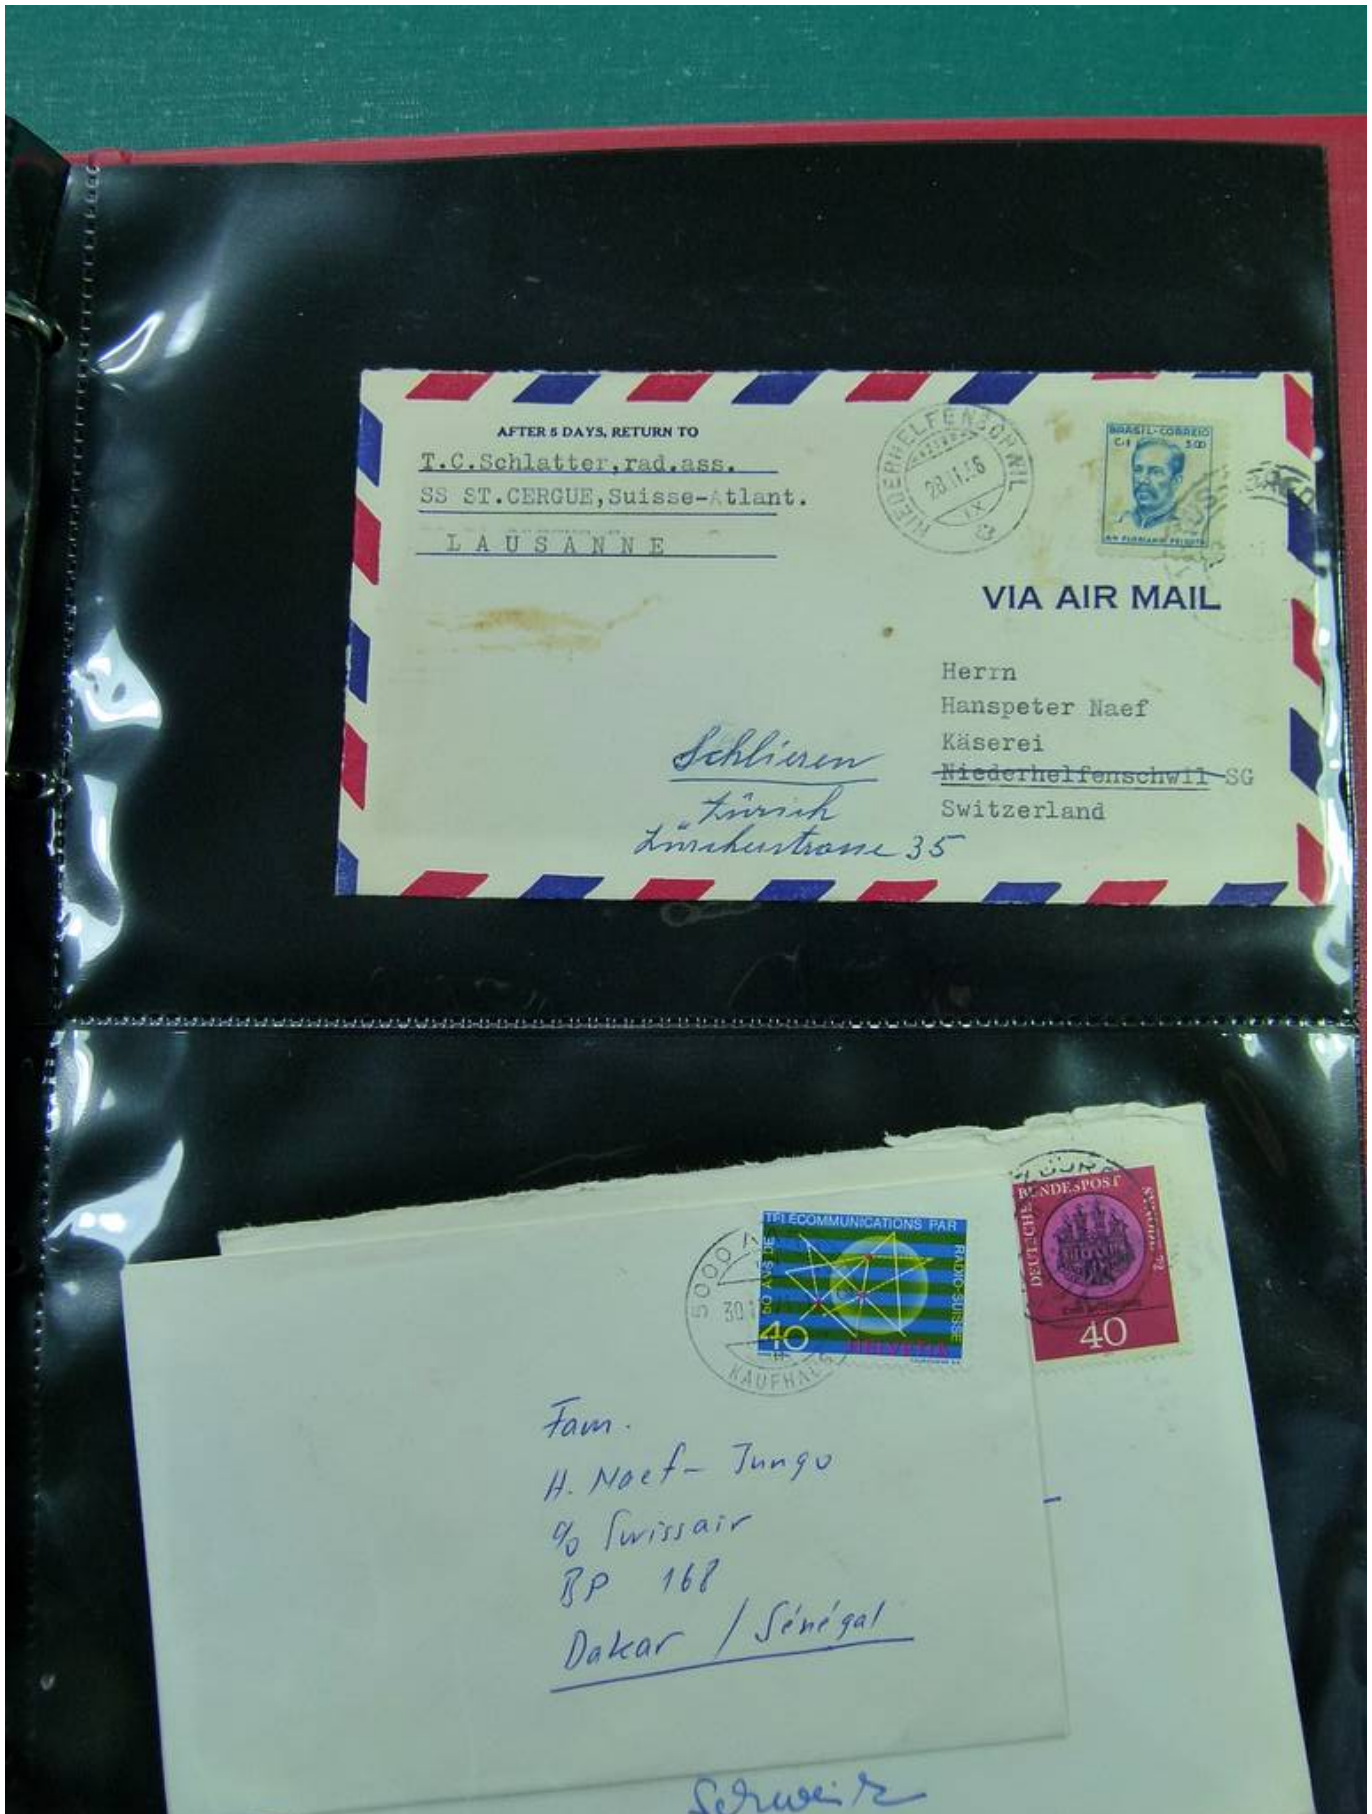 AFTER 5 DAYS, RETURN TO
T.C.Schlatter,rad.ass.
SS ST.CERGUE,Suisse-Atlant.
LAUSANNE
NIEDERHELFENSCHWIL
28.II.56
IX
BRASIL-CORREIO
Cr.$ 5.00
FLORIANO PEIXOTO
VIA AIR MAIL
Herrn
Hanspeter Naef
Käserei
Niederhelfenschwil SG
Switzerland
Schlieren
Zürich
Zürcherstrasse 35
5000
30.
KAUFHAUS
50 ANS DE
TELECOMMUNICATIONS PAR
RADIO-SUISSE
40
HELVETIA
DEUTSCHE
BUNDESPOST
40
Fam.
H. Naef-Jungo
c/o Swissair
BP 168
Dakar / Sénégal
Schweiz